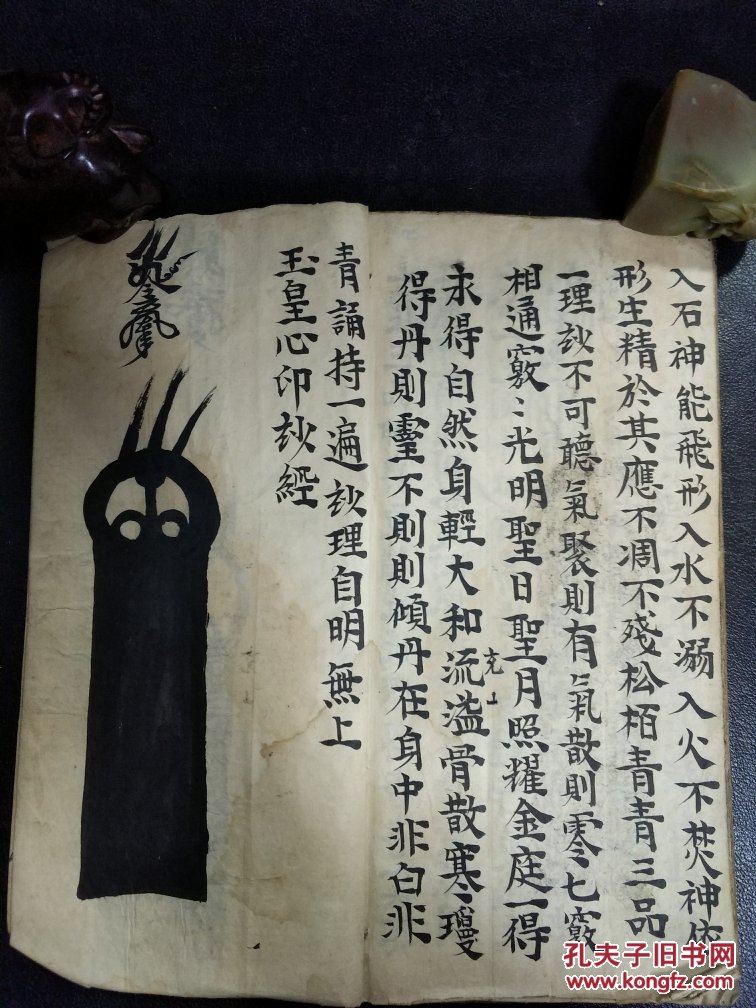 入石神能飛形入水不溺入火不焚神依
形生精於其應不凋不殘松栢青青三品
一理玅不可聽氣聚則有氣散則零七竅
相通竅〻光明聖日聖月照耀金庭一得
永得自然身輕大和流溢骨散寒瓊
充
得丹則靈不則則傾丹在身中非白非
青誦持一遍玅理自明無上
玉皇心印玅經
孔夫子旧书网
www.kongfz.com